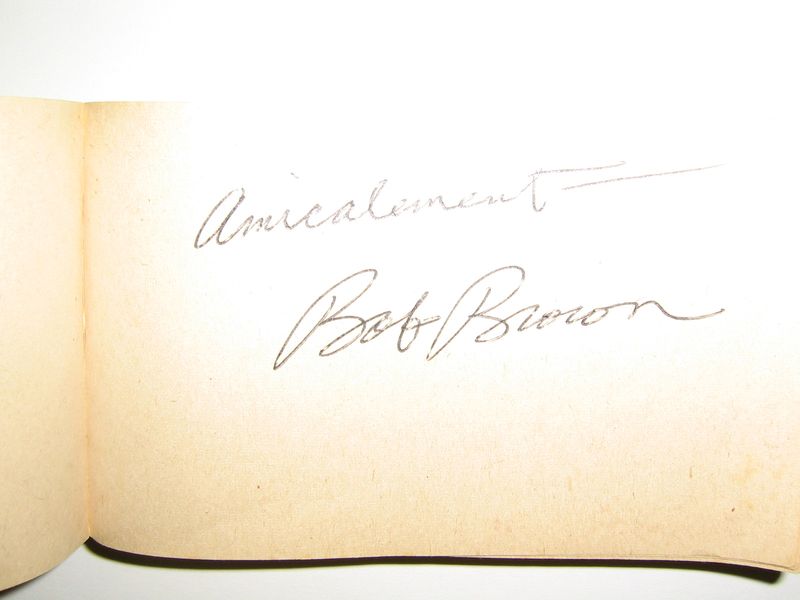 Amicalement —
Bob Brown